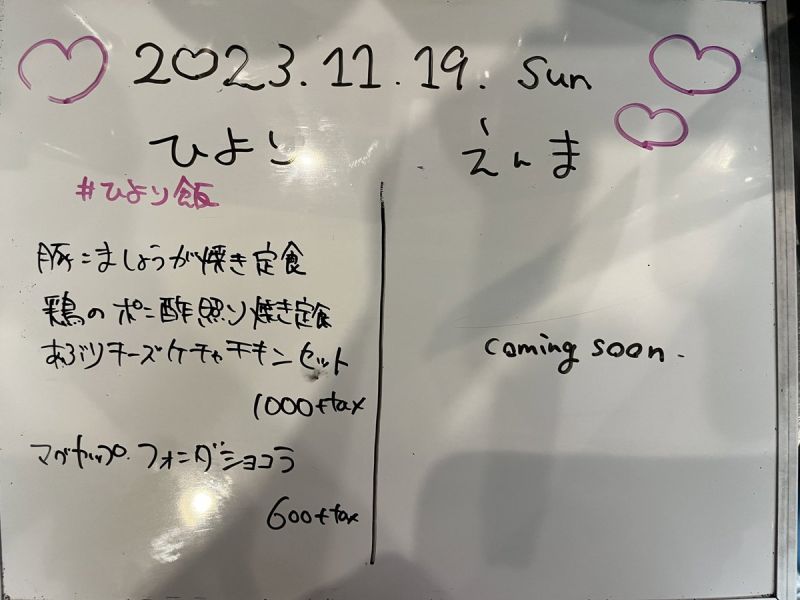 2023.11.19. Sun
ひより
#ひより飯
豚こましょうが焼き定食
鶏のポン酢照り焼き定食
あぶりチーズケチャチキンセット
1000+tax
マグカップ フォンダショコラ
600+tax
えんま
coming soon.